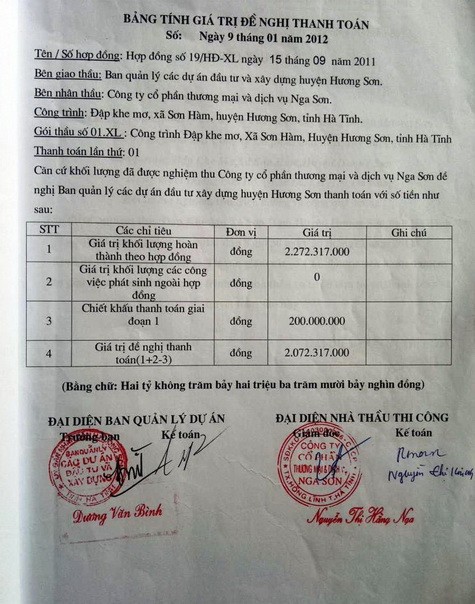 BẢNG TÍNH GIÁ TRỊ ĐỀ NGHỊ THANH TOÁN
Số: Ngày 9 tháng 01 năm 2012
Tên / Số hợp đồng: Hợp đồng số 19/HĐ-XL ngày 15 tháng 09 năm 2011
Bên giao thầu: Ban quản lý các dự án đầu tư và xây dựng huyện Hương Sơn.
Bên nhân thầu: Công ty cổ phần thương mại và dịch vụ Nga Sơn.
Công trình: Đập khe mơ, xã Sơn Hàm, huyện Hương Sơn, tỉnh Hà Tĩnh.
Gói thầu số 01.XL : Công trình Đập khe mơ, Xã Sơn Hàm, Huyện Hương Sơn, tỉnh Hà Tĩnh
Thanh toán lần thứ: 01
Căn cứ khối lượng đã được nghiệm thu Công ty cổ phần thương mại và dịch vụ Nga Sơn đề
nghị Ban quản lý các dự án đầu tư xây dựng huyện Hương Sơn thanh toán với số tiền như
sau:
STT Các chỉ tiêu Đơn vị Giá trị Ghi chú
1 Giá trị khối lượng hoàn thành theo hợp đồng đồng 2.272.317.000
2 Giá trị khối lượng các công việc phát sinh ngoài hợp đồng đồng 0
3 Chiết khấu thanh toán giai đoạn 1 đồng 200.000.000
4 Giá trị đề nghị thanh toán(1+2-3) đồng 2.072.317.000
(Bằng chữ: Hai tỷ không trăm bảy hai triệu ba trăm mười bảy nghìn đồng)
ĐẠI DIỆN BAN QUẢN LÝ DỰ ÁN ĐẠI DIỆN NHÀ THẦU THI CÔNG
Trưởng ban Kế toán Giám đốc Kế toán
BAN QUẢN LÝ
CÁC DỰ ÁN
ĐẦU TƯ VÀ
XÂY DỰNG
T. HÀ TĨNH
CÔNG TY
CỔ PHẦN
THƯƠNG MẠI & DỊCH VỤ
NGA SƠN
Dương Văn Bình
Nguyễn Thị Hằng Nga
Nguyễn Thị